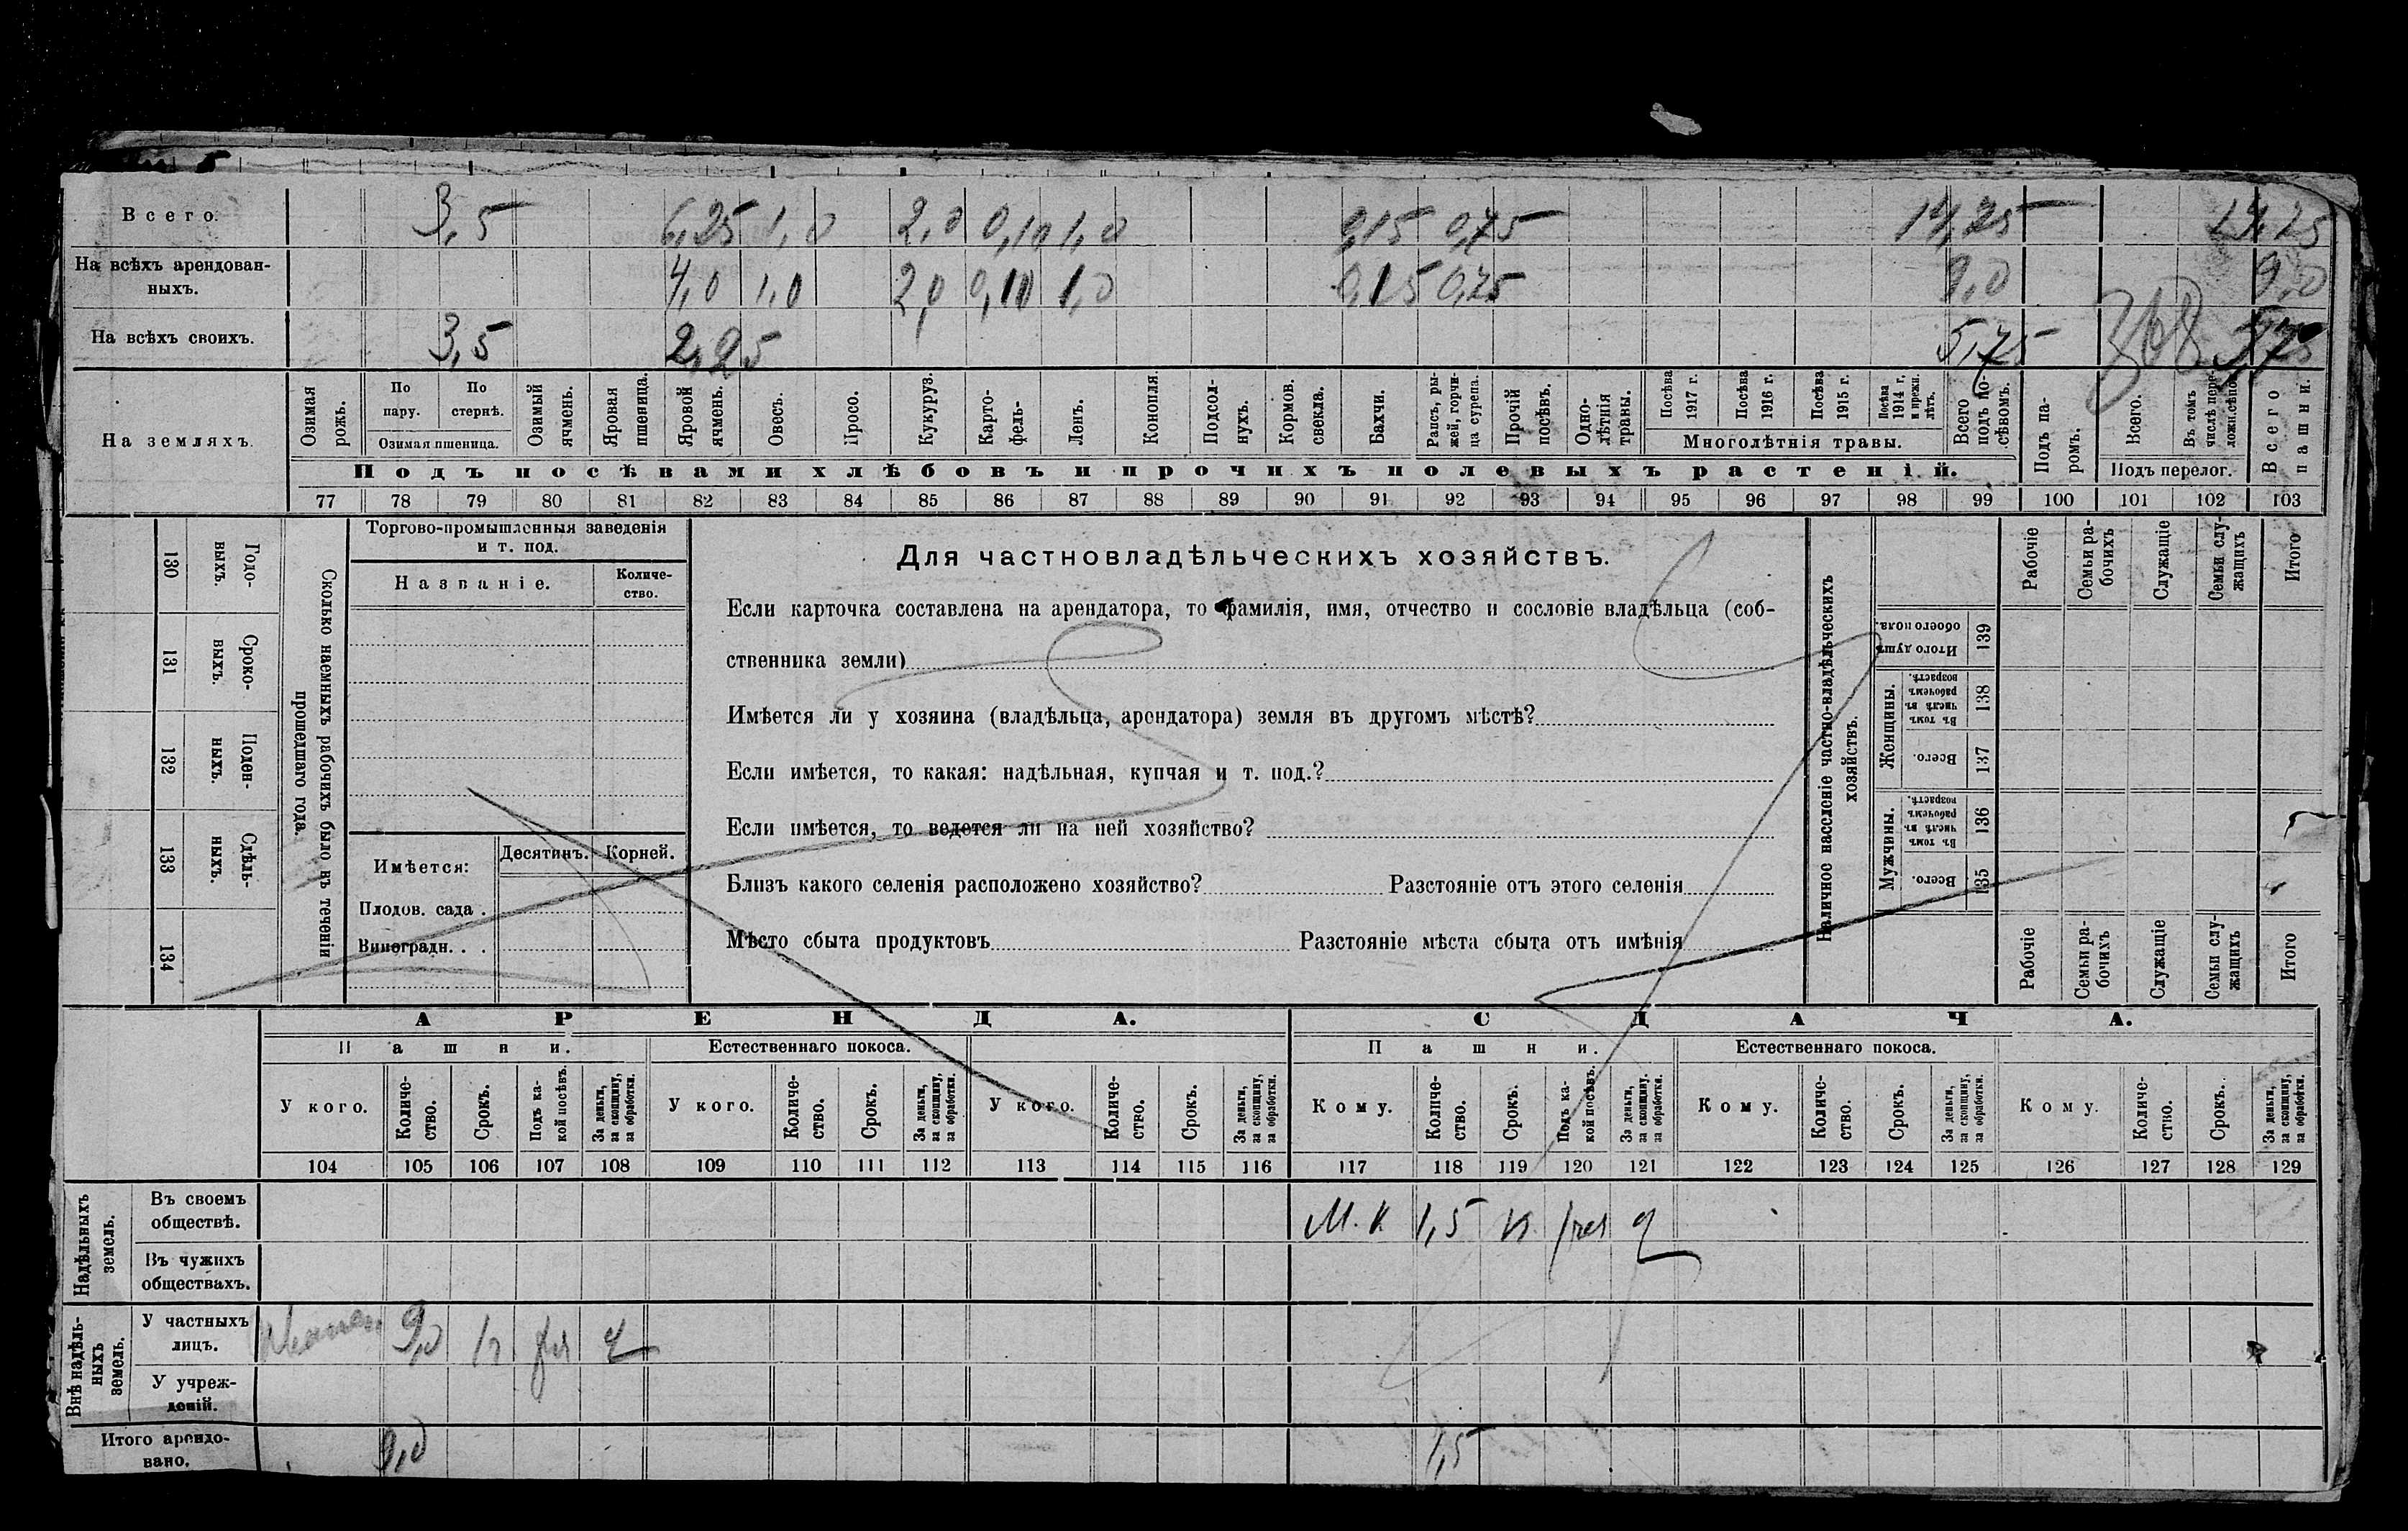 Всего. 3,5 6,25 1,0 2,0 0,10 1,0 0,15 0,75 14,75
На всѣхъ арендован-
ныхъ. 4,0 1,0 2,0 0,10 1,0 0,15 0,75 9,0 9,0
На всѣхъ своихъ. 3,5 2,25 5,75
На земляхъ.
Озимая рожь.
По пару.
По стернѣ.
Озимая пшеница.
Озимый ячмень.
Яровая пшеница.
Яровой ячмень.
Овесъ.
Просо.
Кукуруз.
Карто-
фель-
Ленъ.
Конопля.
Подсол-
нухъ.
Кормов. свекла.
Бахчи.
Рапсъ, ры-
жей, горчи-
ца сурепа.
Прочій посѣвъ.
Одно-
лѣтнія травы.
Посѣва 1917 г.
Посѣва 1916 г.
Посѣва 1915 г.
Посѣва 1914 г. и прежн. лѣтъ.
Многолѣтнія травы.
Всего подъ по-
сѣвомъ.
Подъ па-
ромъ.
Всего.
Въ томъ числѣ пере-
Подъ перелог.
Всего пашни.
Подъ посѣвами хлѣбовъ и прочихъ полевыхъ растеній.
77 78 79 80 81 82 83 84 85 86 87 88 89 90 91 92 93 94 95 96 97 98 99 100 101 102 103
Годо-
выхъ.
130
Сроко-
выхъ.
131
Поден-
ныхъ.
132
Сдѣль-
ныхъ.
133
134
Сколько наемныхъ рабочихъ было въ теченіи
прошедшаго года.
Торгово-промышленныя заведенія
и т. под.
Названіе.
Количе-
ство.
Имѣется: Десятинъ. Корней.
Плодов. сада .
Виноградн. . .
Для частновладѣльческихъ хозяйствъ.
Если карточка составлена на арендатора, то фамилія, имя, отчество и сословіе владѣльца (соб-
ственника земли)
Имѣется ли у хозяина (владѣльца, арендатора) земля въ другомъ мѣстѣ?
Если имѣется, то какая: надѣльная, купчая и т. под.?
Если имѣется, то ведется ли на ней хозяйство?
Близъ какого селенія расположено хозяйство? Разстояніе отъ этого селенія
Мѣсто сбыта продуктовъ Разстояніе мѣста сбыта отъ имѣнія
Наличное населеніе частно-владѣльческихъ
хозяйствъ.
Рабочіе
Семьи ра-
бочихъ
Служащіе
Семьи слу-
жащихъ
Итого
Итого душъ обоего пола. 139
Женщины.
Въ томъ числѣ въ рабочемъ возрастѣ. 138
Всего. 137
Мужчины.
Въ томъ числѣ въ рабочемъ возрастѣ. 136
Всего. 135
Рабочіе
Семьи ра-
бочихъ
Служащіе
Семьи слу-
жащихъ
Итого
АРЕНДА. СДАЧА.
Пашни. Естественнаго покоса. Пашни. Естественнаго покоса.
У кого.
Количе-
ство.
Срокъ.
Подъ ка-
кой посѣвъ.
За деньги,
за скопщину,
за обработки.
У кого.
Количе-
ство.
Срокъ.
За деньги,
за скопщину,
за обработки.
У кого.
Количе-
ство.
Срокъ.
За деньги,
за скопщину,
за обработки.
Кому.
Количе-
ство.
Срокъ.
Подъ ка-
кой посѣвъ.
За деньги,
за скопщину.
за обработки.
Кому.
Количе-
ство.
Срокъ.
За деньги,
за скопщину,
за обработки.
Кому.
Количе-
ство.
Срокъ.
За деньги,
за скопщину,
за обработки.
104 105 106 107 108 109 110 111 112 113 114 115 116 117 118 119 120 121 122 123 124 125 126 127 128 129
Надѣльныхъ
земель.
Въ своемъ
обществѣ. М. К 1,5
Въ чужихъ
обществахъ.
Внѣ надѣль-
ныхъ
земель.
У частныхъ
лицъ. 9,0
У учреж-
деній.
Итого арендо-
вано. 9,0 1,5